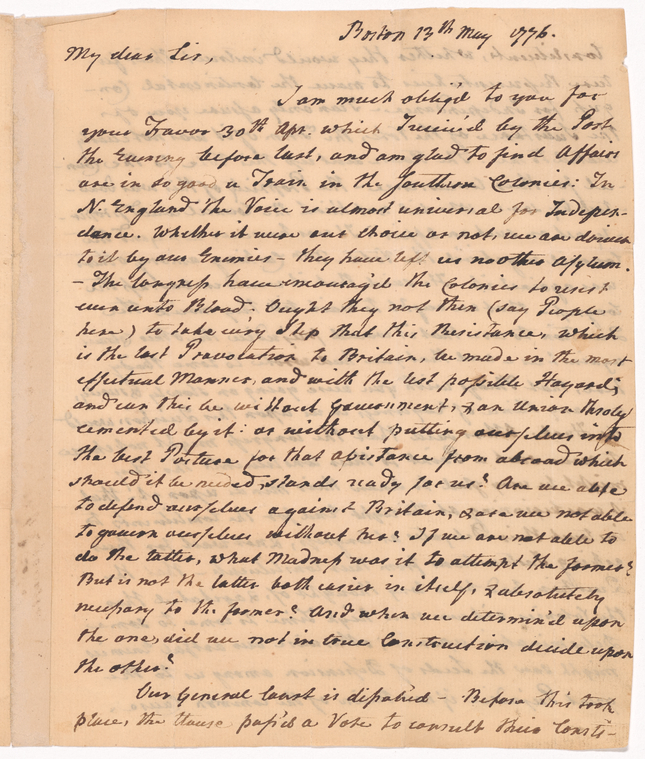 Boston 13th May 1776.
My dear Sir,
I am much oblig'd to you for
your Favor 30th Apr. which I receiv'd by the Post
the Evening before last, and am glad to find Affairs
are in so good a Train in the Southern Colonies: In
N. England the Voice is almost universal for Indepen-
dance. Whether it were our choice or not, we are driven
to it by our Enemies – they have left us no other Asylum.
– The Congress have encourag'd the Colonies to resist
even unto Blood. Ought they not then (say People
here) to take ev'ry Step that this Resistance, which
is the last Provocation to Britain, be made in the most
effectual Manner, and with the least possible Hazard;
and can this be without Government, & an Union
cemented by it: or without putting ourselves into
the best Posture for that assistance from abroad which
should it be needed, stands ready for us? Are we able
to defend ourselves against Britain, & are we not able
to govern ourselves without her? If we are not able to
do the latter, what Madness was it to attempt the former?
But is not the latter both easier in itself, & absolutely
necessary to the former? And when we determin'd upon
the one, did we not in true Construction decide upon
the other?
Our General Court is dissolv'd – Before this took
place, the House pass'd a Vote to consult their Consti-